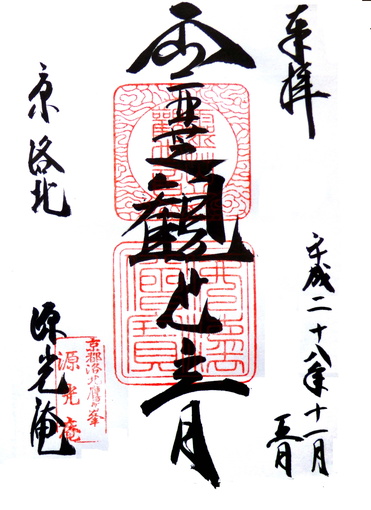 奉拝
平成二十八年十一月
五日
霊芝観世音
京 洛北
源光庵
京都洛北鷹ヶ峯
源光庵